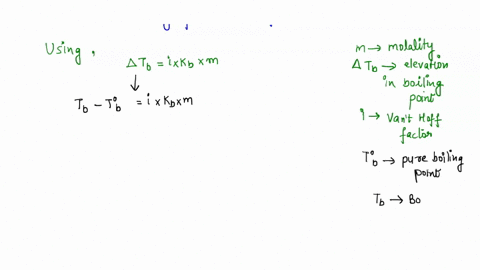 Using,
ΔT_b = i × K_b × m
↓
T_b - T°_b = i × K_b × m
m → molality
ΔT_b → elevation
in boiling
point
i → Van't Hoff
factor
T°_b → pure boiling
point
T_b → Bo